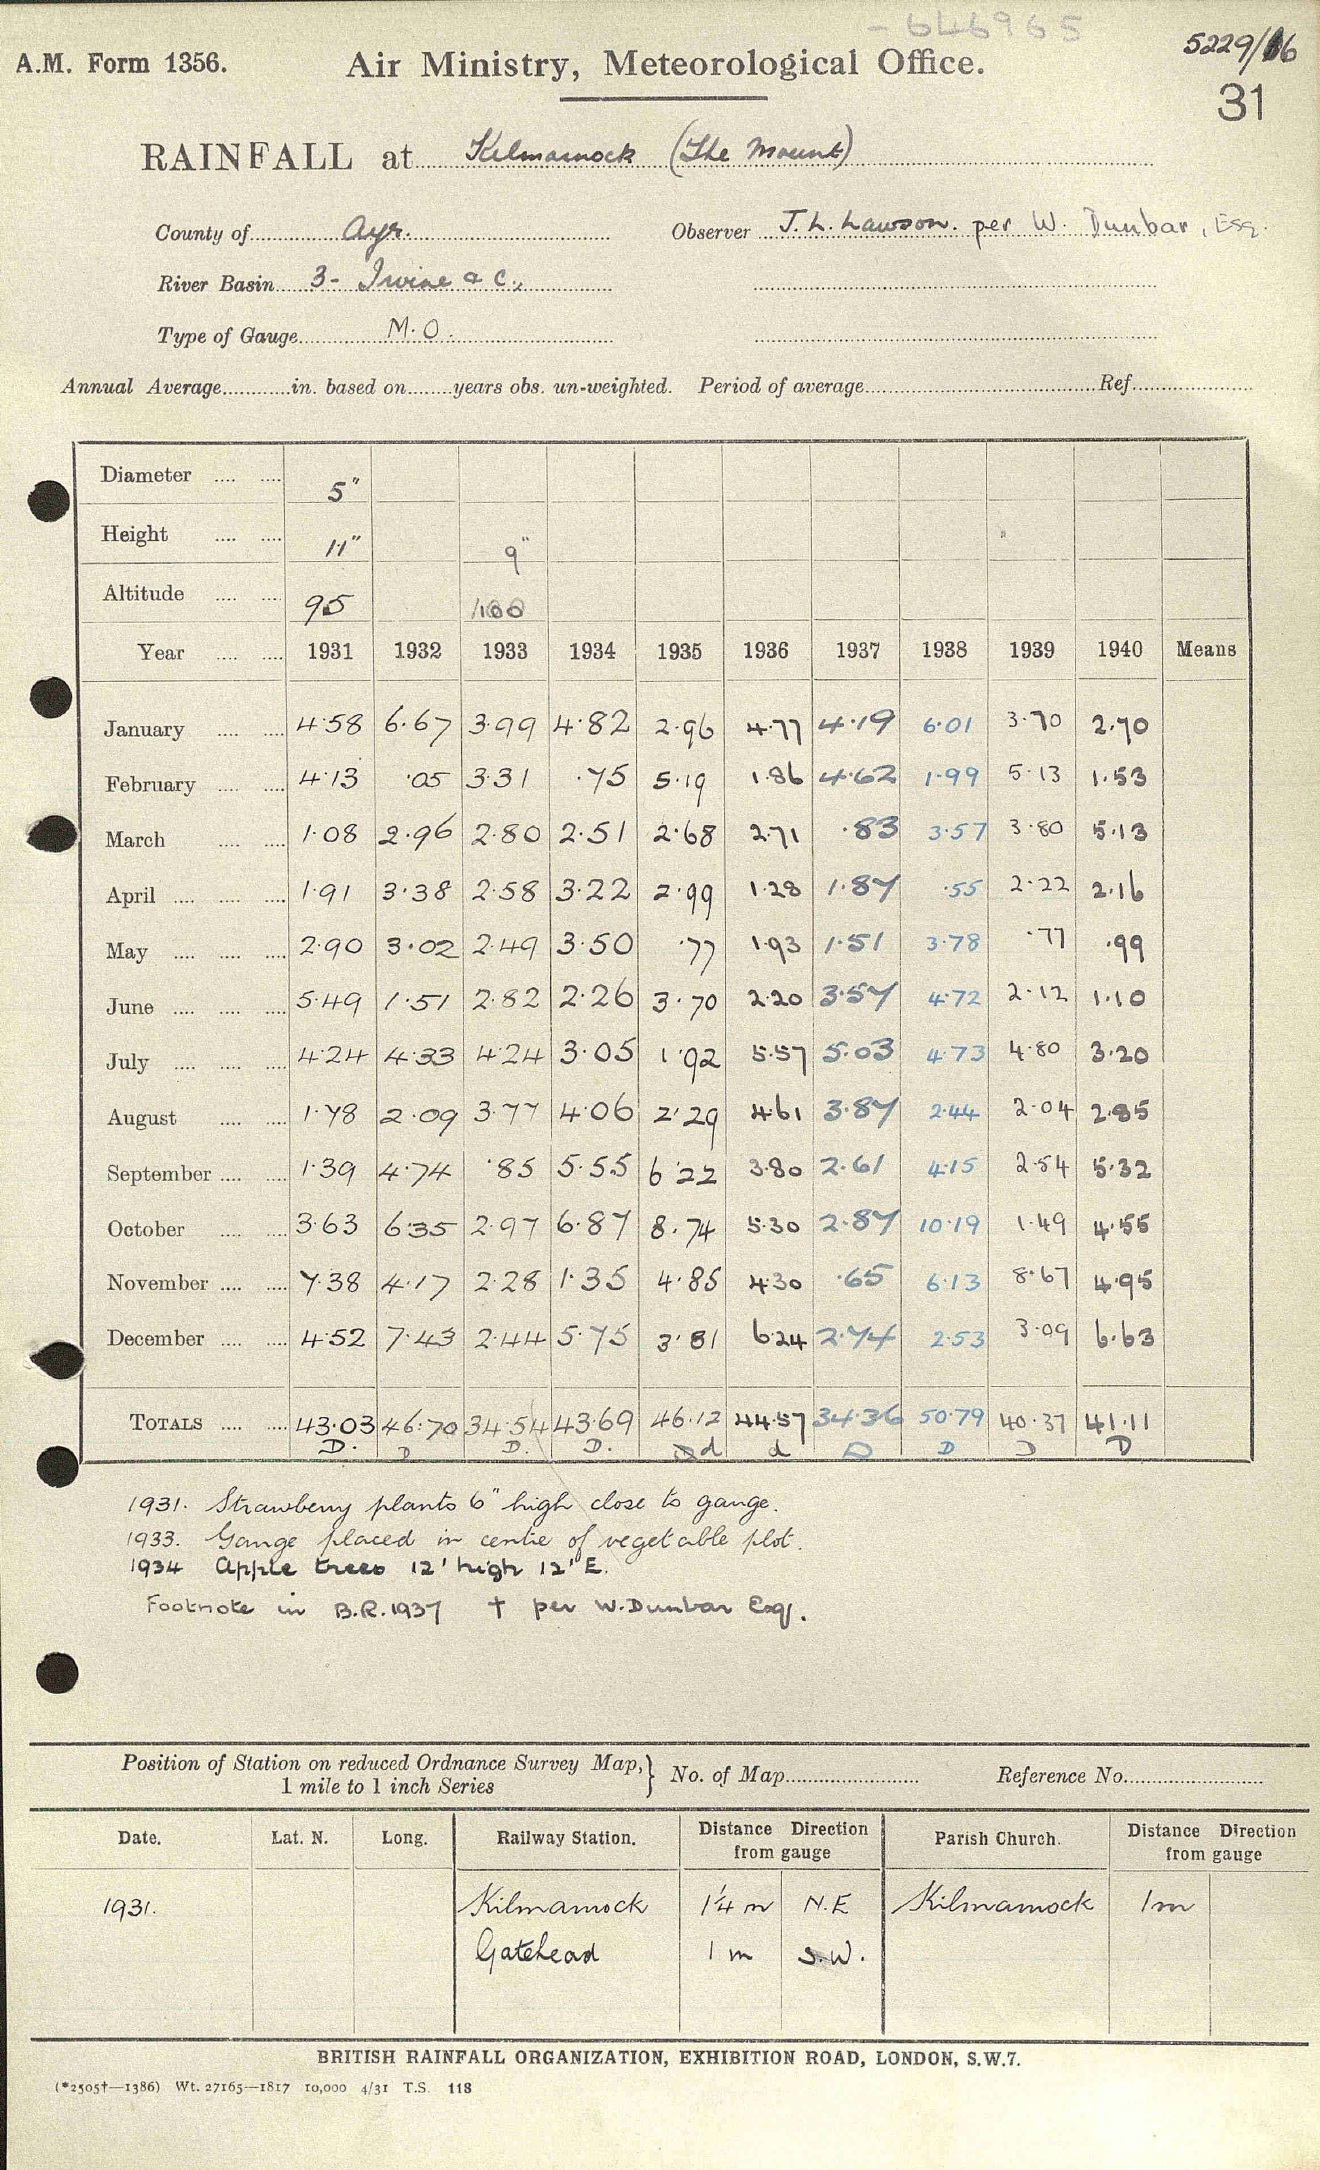 - 646965
5229/16
A.M. Form 1356.
Air Ministry, Meteorological Office.
31
RAINFALL at Kilmarnock (The Mount)
County of Ayr. Observer J. L. Lawson. per W. Dunbar, Esq.
River Basin 3- Irvine & C.,
Type of Gauge M.O.
Annual Average in. based on years obs. un-weighted. Period of average Ref.
Diameter 5"
Height 11" 9"
Altitude 95 100
Year 1931 1932 1933 1934 1935 1936 1937 1938 1939 1940 Means
January 4.58 6.67 3.99 4.82 2.96 4.77 4.19 6.01 3.70 2.70
February 4.13 .05 3.31 .75 5.19 1.86 4.62 1.99 5.13 1.53
March 1.08 2.96 2.80 2.51 2.68 2.71 .83 3.57 3.80 5.13
April 1.91 3.38 2.58 3.22 2.99 1.28 1.87 .55 2.22 2.16
May 2.90 3.02 2.49 3.50 .77 1.93 1.51 3.78 .77 .99
June 5.49 1.51 2.82 2.26 3.70 2.20 3.57 4.72 2.12 1.10
July 4.24 4.33 4.24 3.05 1.92 5.57 5.03 4.73 4.80 3.20
August 1.78 2.09 3.77 4.06 2.29 4.61 3.87 2.44 2.04 2.85
September 1.39 4.74 .85 5.55 6.22 3.80 2.61 4.15 2.54 5.32
October 3.63 6.35 2.97 6.87 8.74 5.30 2.87 10.19 1.49 4.55
November 7.38 4.17 2.28 1.35 4.85 4.30 .65 6.13 8.67 4.95
December 4.52 7.43 2.44 5.75 3.81 6.24 2.74 2.53 3.09 6.63
TOTALS 43.03 46.70 34.54 43.69 46.12 44.57 34.36 50.79 40.37 41.11
D. D D. D. d d D D D D
1931. Strawberry plants 6" high close to gauge.
1933. Gauge placed in centre of vegetable plot.
1934 Apple trees 12' high 12' E.
Footnote in B.R. 1937 † per W. Dunbar Esq.
Position of Station on reduced Ordnance Survey Map, } No. of Map Reference No.
1 mile to 1 inch Series
Date. Lat. N. Long. Railway Station. Distance Direction from gauge Parish Church. Distance Direction from gauge
1931. Kilmarnock 1¼ m N.E Kilmarnock 1m
Gatehead 1 m S.W.
BRITISH RAINFALL ORGANIZATION, EXHIBITION ROAD, LONDON, S.W.7.
(*2505†—1386) Wt. 27165—1817 10,000 4/31 T.S. 118